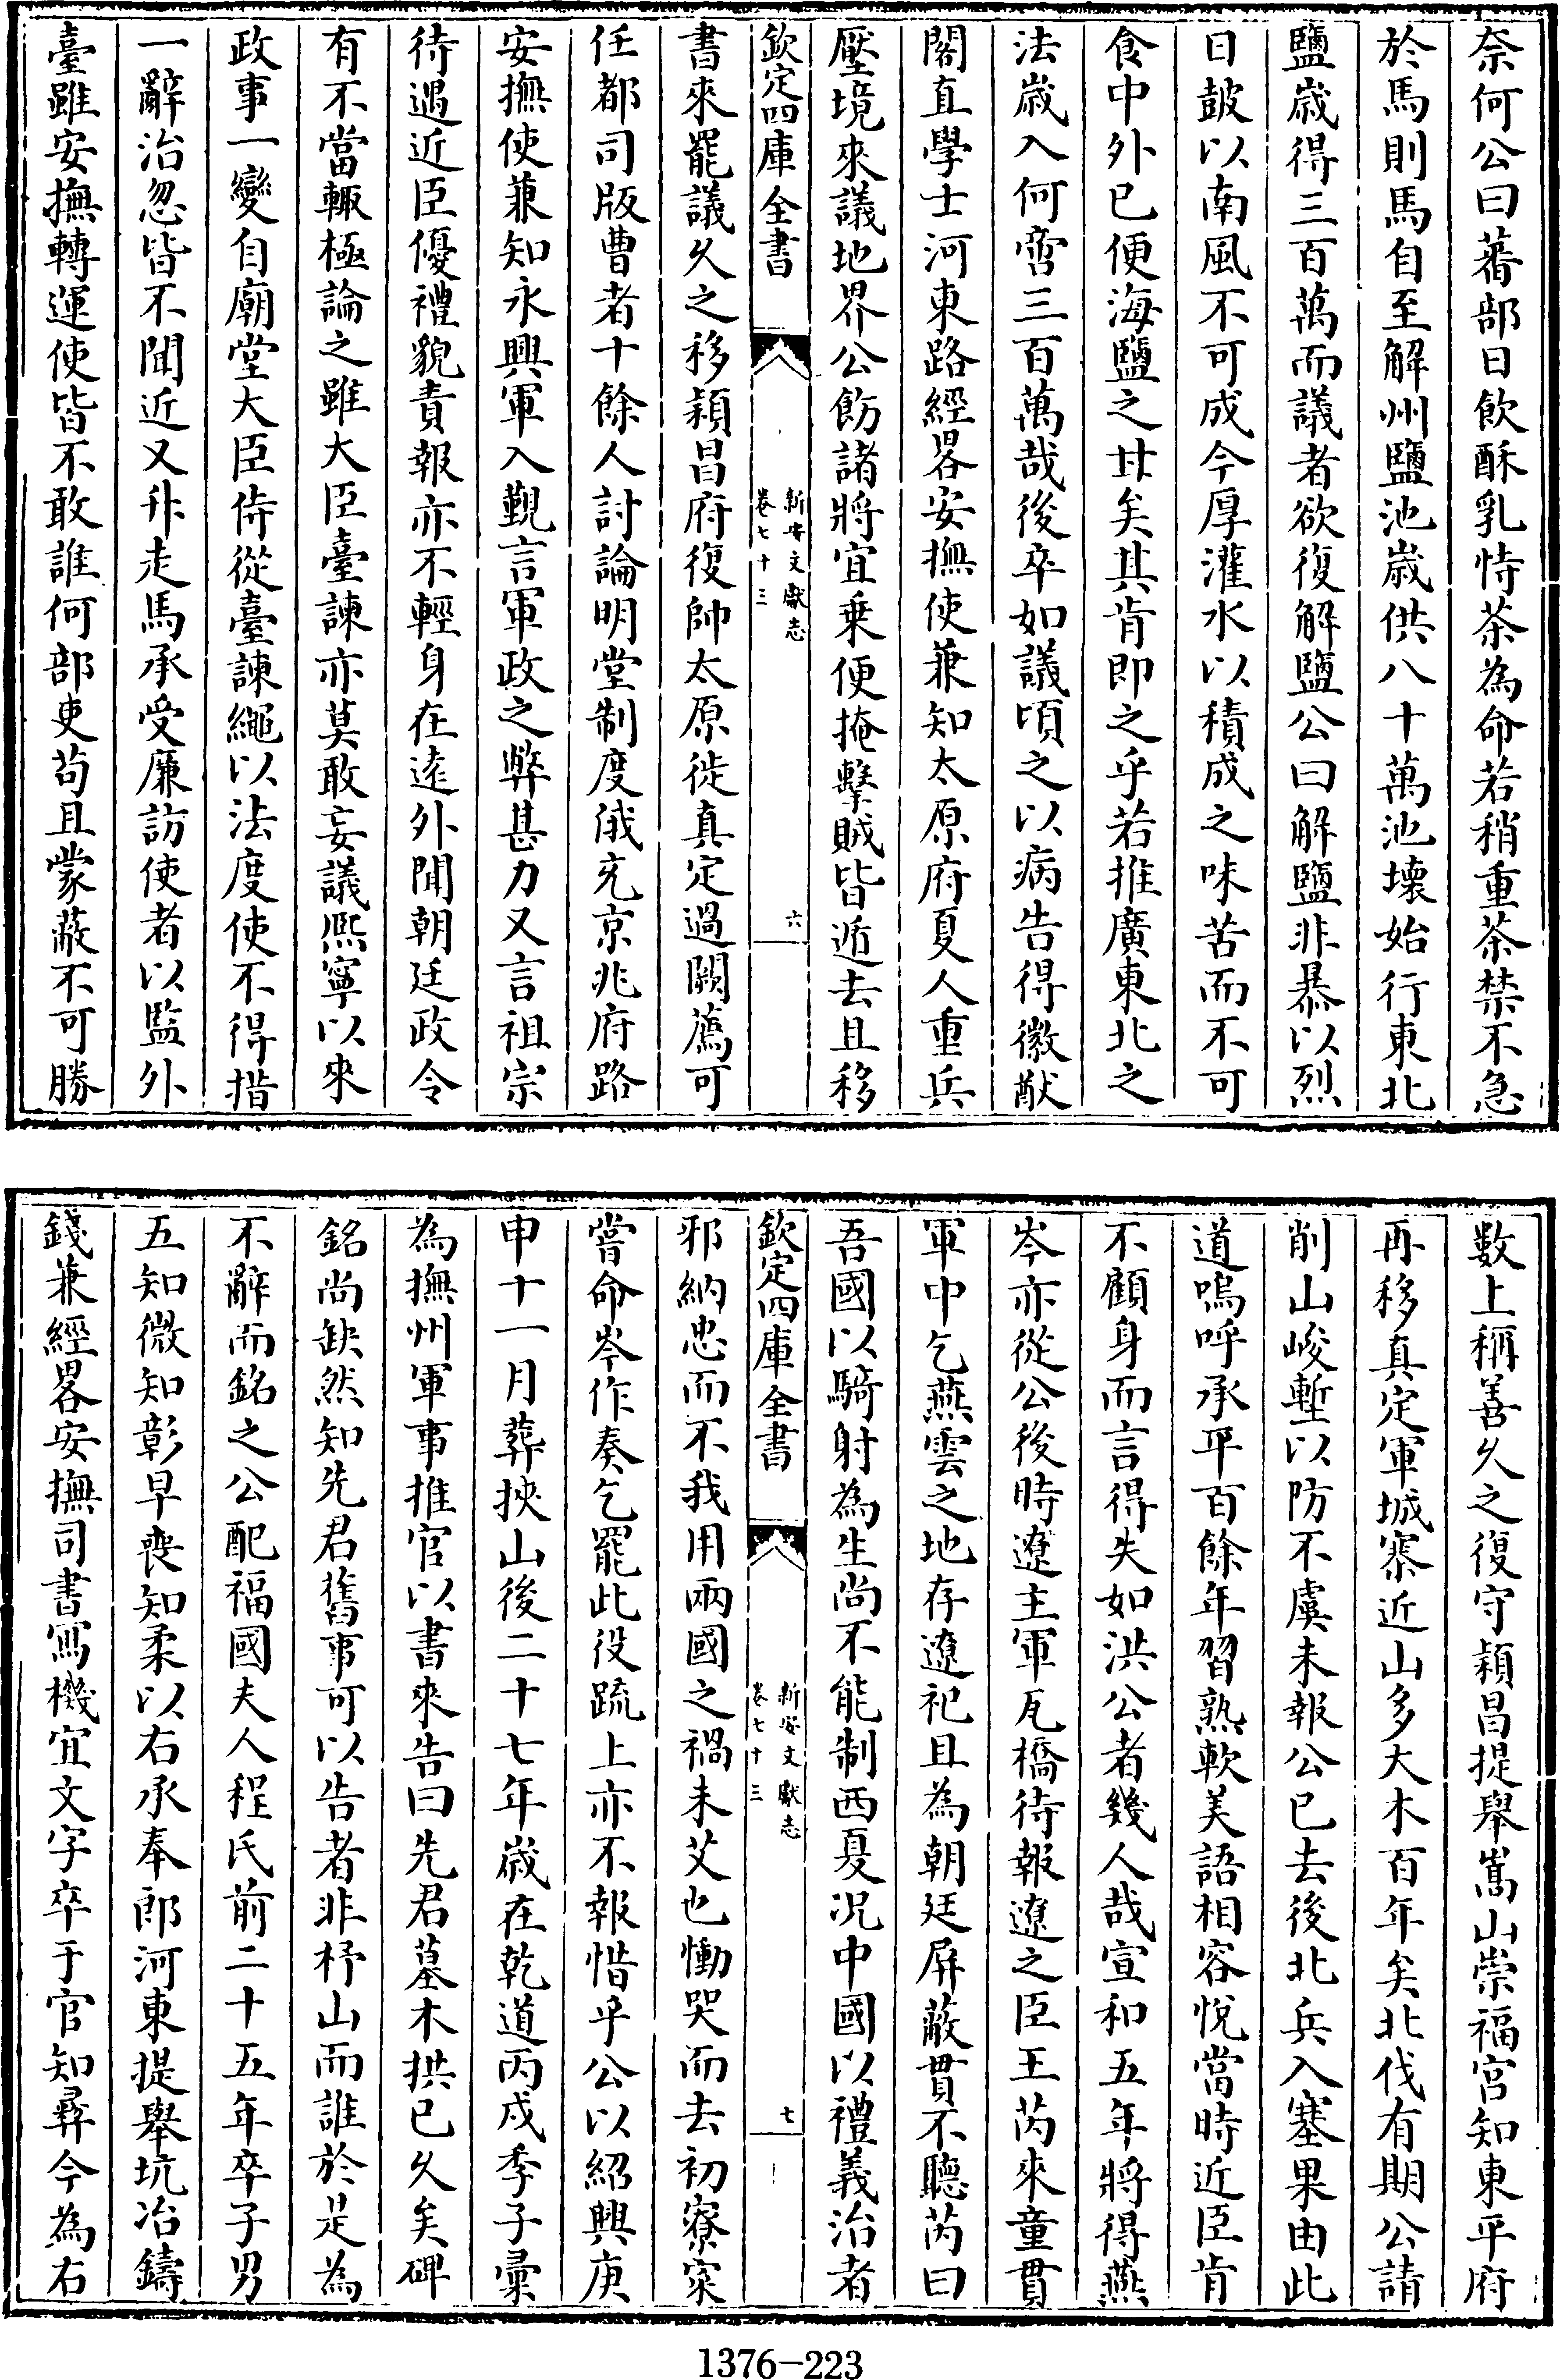 奈何公曰蕃部日飲酥乳恃茶為命若稍重茶禁不急
於馬則馬自至解州鹽池歳供八十萬池壊始行東北
鹽歳得三百萬而議者欲復解鹽公曰解鹽非暴以烈
日鼓以南風不可成今厚灌水以積成之味苦而不可
食中外已便海鹽之甘矣其肯即之乎若推廣東北之
法歳入何啻三百萬哉後卒如議頃之以病告得徽猷
閣直學士河東路經畧安撫使兼知太原府夏人重兵
壓境來議地界公飭諸將宜乗便掩擊賊皆遁去且移
欽定四庫全書
新安文獻志
卷七十三
六
書來罷議久之移潁昌府復帥太原徙真定過闕薦可
任都司版曹者十餘人討論明堂制度俄充京兆府路
安撫使兼知永興軍入覲言軍政之弊甚力又言祖宗
待遇近臣優禮貌責報亦不輕身在逺外聞朝廷政令
有不當輙極論之雖大臣臺諫亦莫敢妄議熈寧以來
政事一變自廟堂大臣侍從臺諫繩以法度使不得措
一辭治忽皆不聞近又升走馬承受廉訪使者以監外
臺雖安撫轉運使皆不敢誰何部吏苟且蒙蔽不可勝
數上稱善久之復守潁昌提舉嵩山崇福宫知東平府
再移真定軍城寨近山多大木百年矣北伐有期公請
削山峻塹以防不虞未報公已去後北兵入塞果由此
道嗚呼承平百餘年習熟軟美語相容悅當時近臣肯
不顧身而言得失如洪公者幾人哉宣和五年將得燕
岑亦從公後時遼主軍瓦橋待報遼之臣王芮來童貫
軍中乞燕雲之地存遼祀且為朝廷屏蔽貫不聽芮曰
吾國以騎射為生尚不能制西夏況中國以禮義治者
欽定四庫全書
新安文獻志
卷七十三
七
邪納忠而不我用兩國之禍未艾也慟哭而去初寮寀
嘗命岑作奏乞罷此役疏上亦不報惜乎公以紹興庚
申十一月葬挾山後二十七年歳在乾道丙戌季子彚
為撫州軍事推官以書來告曰先君墓木拱已久矣碑
銘尚缺然知先君舊事可以告者非杼山而誰於是為
不辭而銘之公配福國夫人程氏前二十五年卒子男
五知微知彰早喪知柔以右承奉郎河東提舉坑冶鑄
錢兼經畧安撫司書寫機宜文字卒于官知彛今為右
1376-223